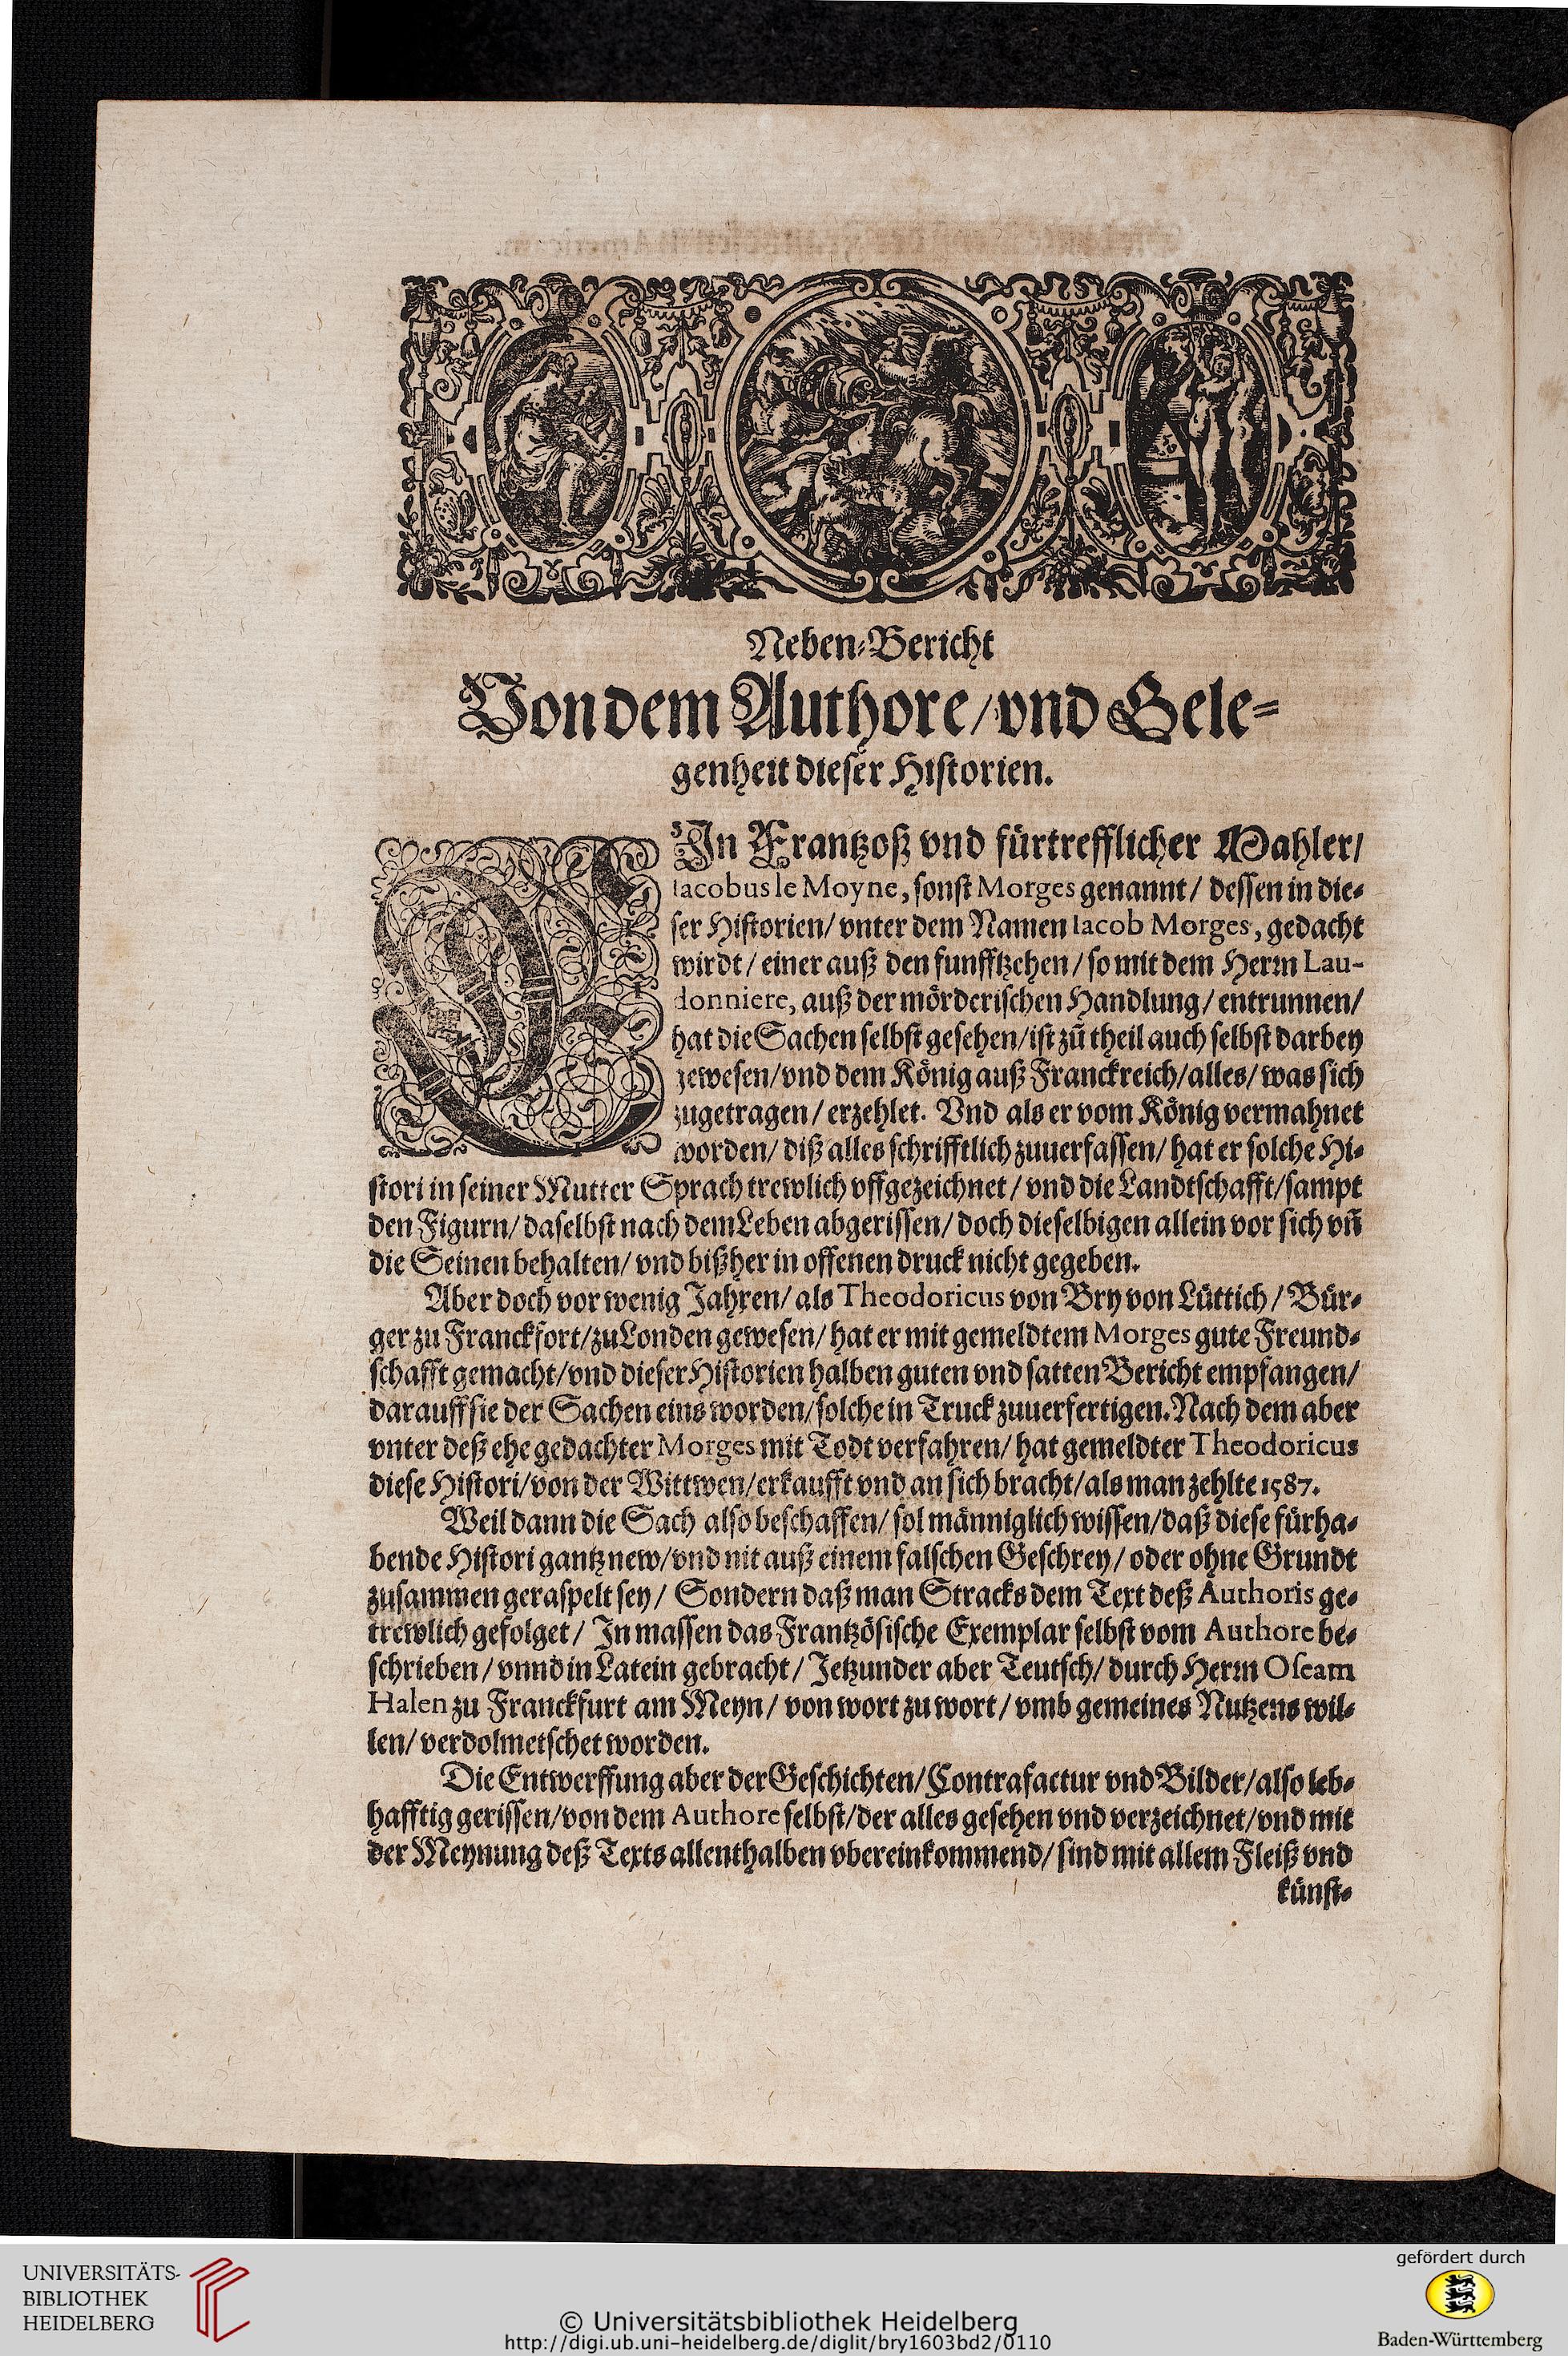 Neben-Bericht
Von dem Authore/ vnd Gele-
genheit dieser Historien.
EIn Frantzoß vnd fürtrefflicher Mahler/
Iacobus le Moyne, sonst Morges genannt/ dessen in die-
ser Historien/ vnter dem Namen Iacob Morges, gedacht
wirdt/ einer auß den funfftzehen/ so mit dem Herrn Lau-
donniere, auß der mörderischen Handlung/ entrunnen/
hat die Sachen selbst gesehen/ ist zũ theil auch selbst darbey
gewesen/ vnd dem König auß Franckreich/ alles/ was sich
zugetragen/ erzehlet. Vnd als er vom König vermahnet
worden/ diß alles schrifftlich zuuerfassen/ hat er solche Hi-
stori in seiner Mutter Sprach trewlich vffgezeichnet/ vnd die Landtschafft/ sampt
den Figurn/ daselbst nach dem Leben abgerissen/ doch dieselbigen allein vor sich vñ
die Seinen behalten/ vnd bißher in offenen druck nicht gegeben.
Aber doch vor wenig Jahren/ als Theodoricus von Bry von Lüttich/ Bür-
ger zu Franckfort/ zu Londen gewesen/ hat er mit gemeldtem Morges gute Freund-
schafft gemacht/ vnd dieser Historien halben guten vnd satten Bericht empfangen/
darauff sie der Sachen eins worden/ solche in Truck zuuerfertigen. Nach dem aber
vnter deß ehe gedachter Morges mit Todt verfahren/ hat gemeldter Theodoricus
diese Histori/ von der Wittwen/ erkaufft vnd an sich bracht/ als man zehlte 1587.
Weil dann die Sach also beschaffen/ sol männiglich wissen/ daß diese fürha-
bende Histori gantz new/ vnd nit auß einem falschen Geschrey/ oder ohne Grundt
zusammen geraspelt sey/ Sondern daß man Stracks dem Text deß Authoris ge-
trewlich gefolget/ In massen das Frantzösische Exemplar selbst vom Authore be-
schrieben/ vnnd in Latein gebracht/ Jetzunder aber Teutsch/ durch Herrn Oseam
Halen zu Franckfurt am Meyn/ von wort zu wort/ vmb gemeines Nutzens wil-
len/ verdolmetschet worden.
Die Entwerffung aber der Geschichten/ Contrafactur vnd Bilder/ also leb-
hafftig gerissen/ von dem Authore selbst/ der alles gesehen vnd verzeichnet/ vnd mit
der Meynung deß Texts allenthalben vbereinkommend/ sind mit allem Fleiß vnd
künst-
UNIVERSITÄTS-
BIBLIOTHEK
HEIDELBERG
© Universitätsbibliothek Heidelberg
http://digi.ub.uni-heidelberg.de/diglit/bry1603bd2/0110
gefördert durch
Baden-Württemberg